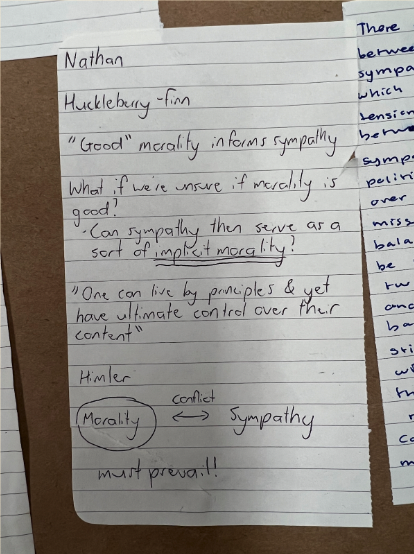 Nathan
Huckleberry-finn
"Good" morality informs sympathy
What if we're unsure if morality is
good?
· Can sympathy then serve as a
sort of implicit morality?
"One can live by principles & yet
have ultimate control over their
content"
Himler
conflict
Morality ↔ Sympathy
must prevail!
There
betwee
sympa
which
tension
betwe
sympa
politi
over
miss
bala
be
rw
and
ba
sti
wi
th
r
co
m